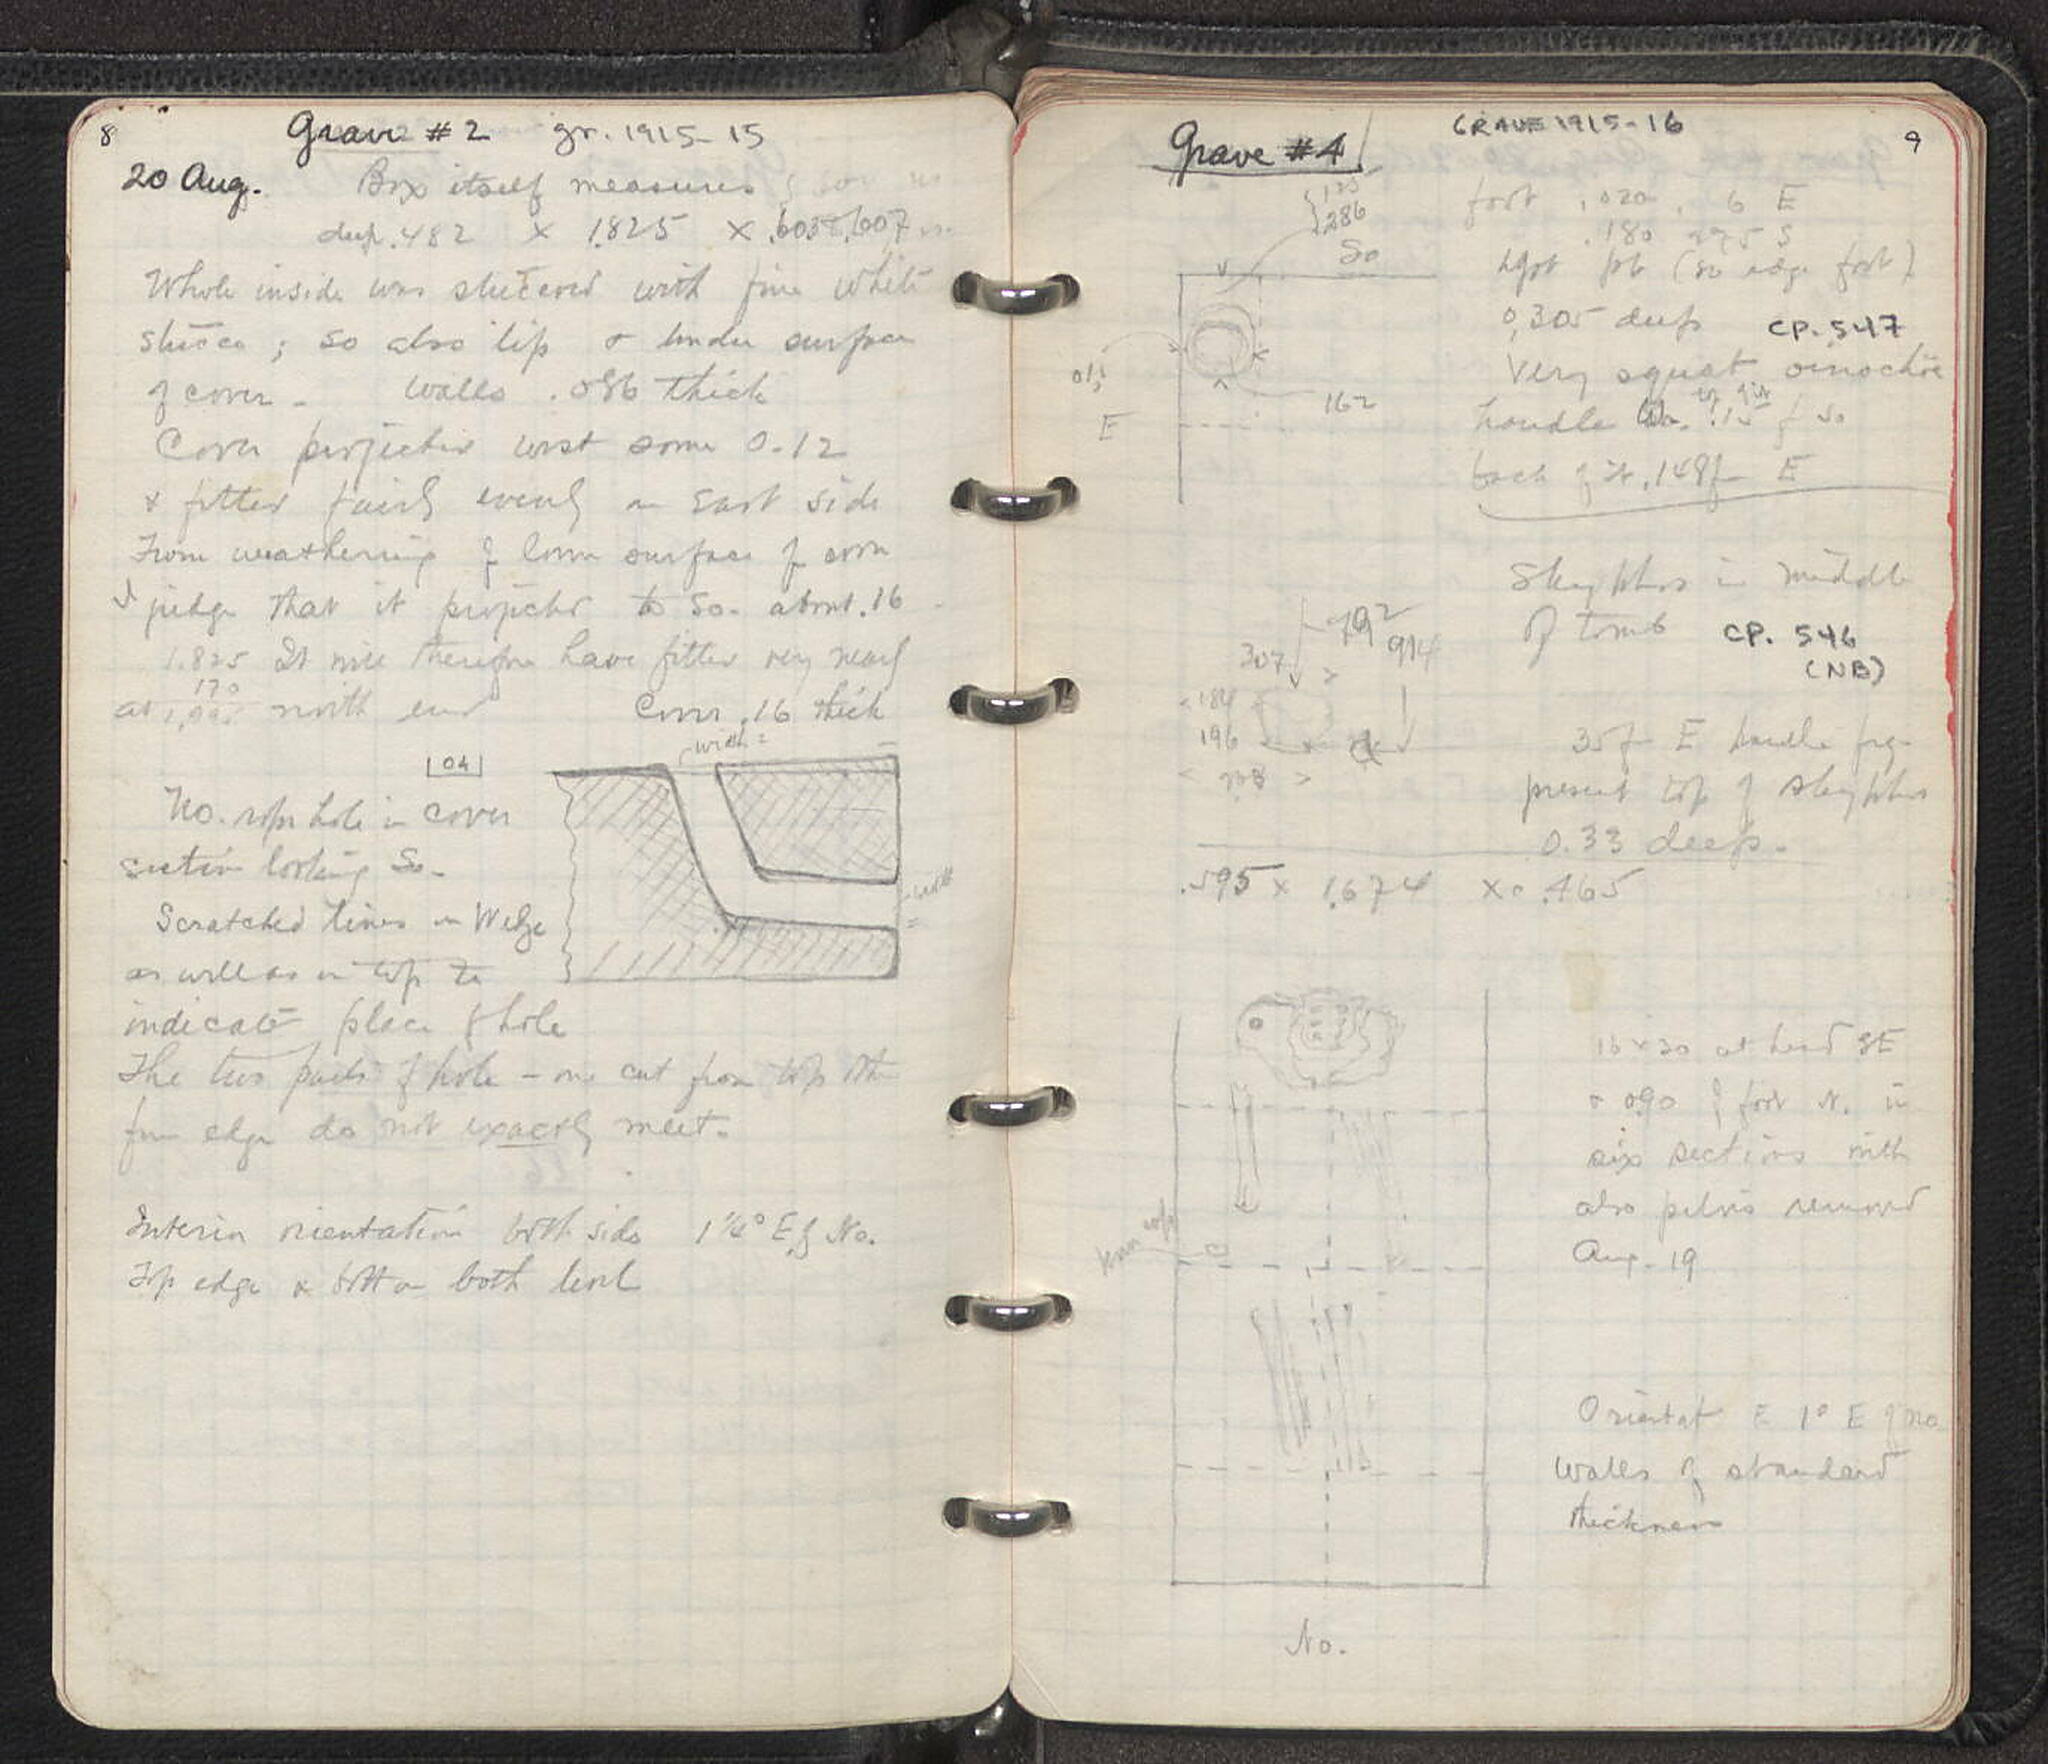 8
Grave #2 gr. 1915-15
20 Aug. Box itself measures
deep .482 × 1.825 × .603 & .607
Whole inside was stuccoed with fine white
stucco ; so also lip & under surface
of cover - Walls .086 thick
Cover projected west some 0.12
& fitted fairly evenly on East side
From weathering of lower surface of cover
I judge that it projected to So. about .16
1.825 It will therefore have fitted very nearly
170
at north end Cover .16 thick
width =
04
No. rope hole in cover
section looking So.
Scratched lines on W edge
as well as on top to
indicate place of hole
The two parts of hole - one cut from top other
from edge do not exactly meet.
Interior orientation both sides 1¼° E of No.
Top edge & bottom both level
9
GRAVE 1915-16
Grave #4
286
So
foot .020 . 6 E
.180 S
(So edge foot)
0,305 deep CP. 547
Very squat oinochoe
162
E
handle .15 f So
back of it .149 f E
Skyphos in middle
of tomb CP. 546
(NB)
792
914
307
184
196
35 f E handle
present top of skyphos
0.33 deep.
.595 × 1.674 × 0.465
16 × 30 at head SE
& 090 f foot N. in
six sections with
also pelvis removed
Aug. 19
knee cap
Orientat E 1° E of No
Walls of standard
thickness
No.